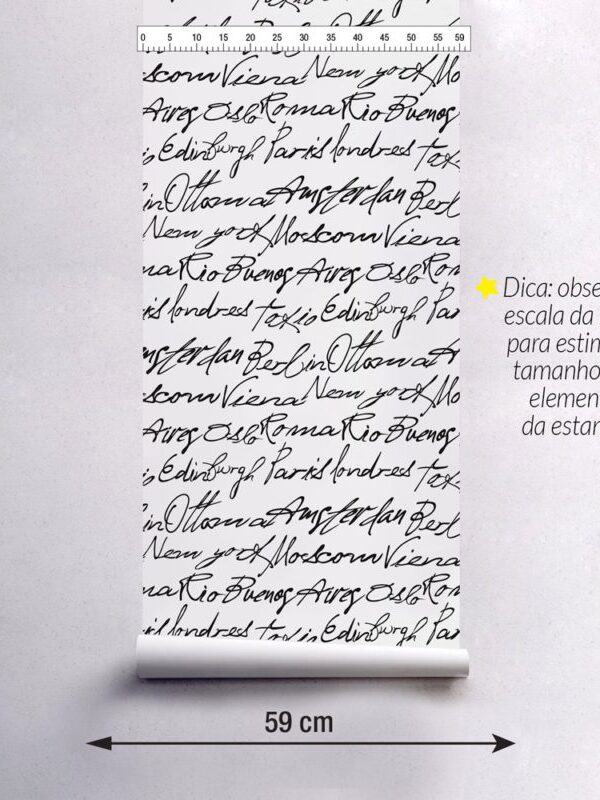 0 5 10 15 20 25 30 35 40 45 50 55 59
scow Viena New york Mo
Aires Oslo Roma Rio Buenos
io Edinburgh Paris londres Tox
in Ottowa Amsterdan Berl
New york Moscow Viena
ma Rio Buenos Aires Oslo Rom
is londres Toxio Edinburgh Par
msterdan Berlin Ottowa A
scow Viena New york Mo
Aires Oslo Roma Rio Buenos
io Edinburgh Paris londres Tox
in Ottowa Amsterdan Berl
New york Moscow Viena
ma Rio Buenos Aires Oslo Rom
is londres Toxio Edinburgh Par
Dica: obse
escala da
para estim
tamanho
elemen
da estar
59 cm